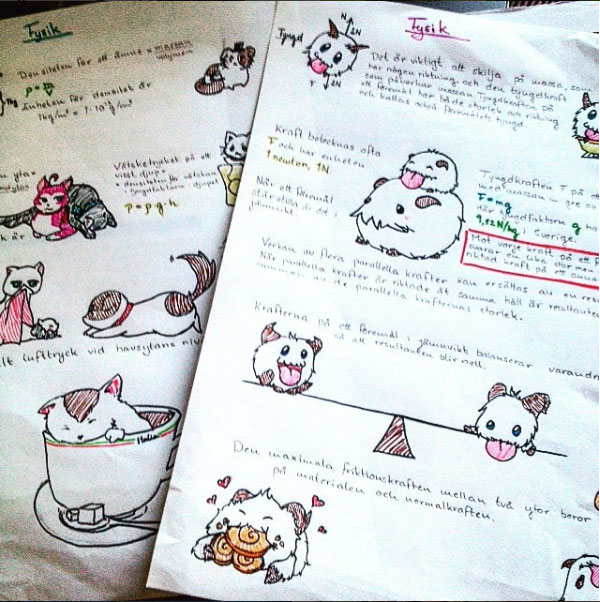 Fysik
Densiteten för ett ämne = massan
volymen
Enheten för densitet är
1 kg/m³ = 1·10⁻³ g/m³
Vätsketrycket på ett
visst djup =
densiteten för vätskan
p = ρ·g·h
lufttryck vid havsytans
Italia
Fysik
Tyngd
N
2N
F
2N
Det är viktigt att skilja på massa, som
har någon riktning och den tyngdkraft
som påverkar massan. Tyngdkraften på
ett föremål har både storlek och riktning
och kallas också föremålets tyngd
Kraft betecknas ofta
F och har enheten
1 newton, 1N
När ett föremål
jämvikt.
Tyngdkraften F på ett
med massan m ges av
F=mg
där tyngdfaktorn g
9,82N/kg i Sverige.
Mot varje kraft på ett
svarar en lika stor men
riktad kraft på ett
Verkan av flera parallella krafter kan ersättas av en
När parallella krafter är riktade åt samma håll är
summan av de parallella krafternas storlek.
Krafterna på ett föremål i jämvikt balanserar varandra
så att resultanten blir noll.
Den maximala friktionskraften mellan två ytor beror
på materialen och normalkraften.